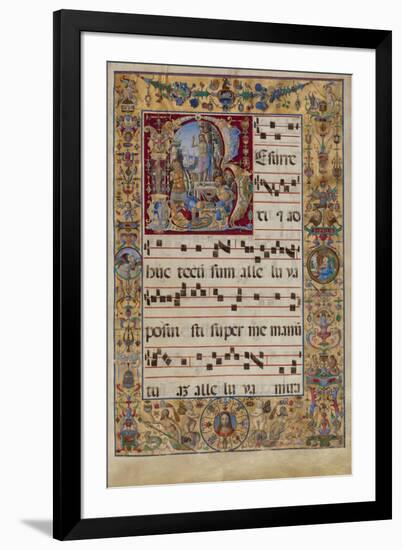 Resurre
xi ⁊ ad
huc tecū sum alle lu ya
posui sti super me manū
tu aꝫ alle lu ya mira